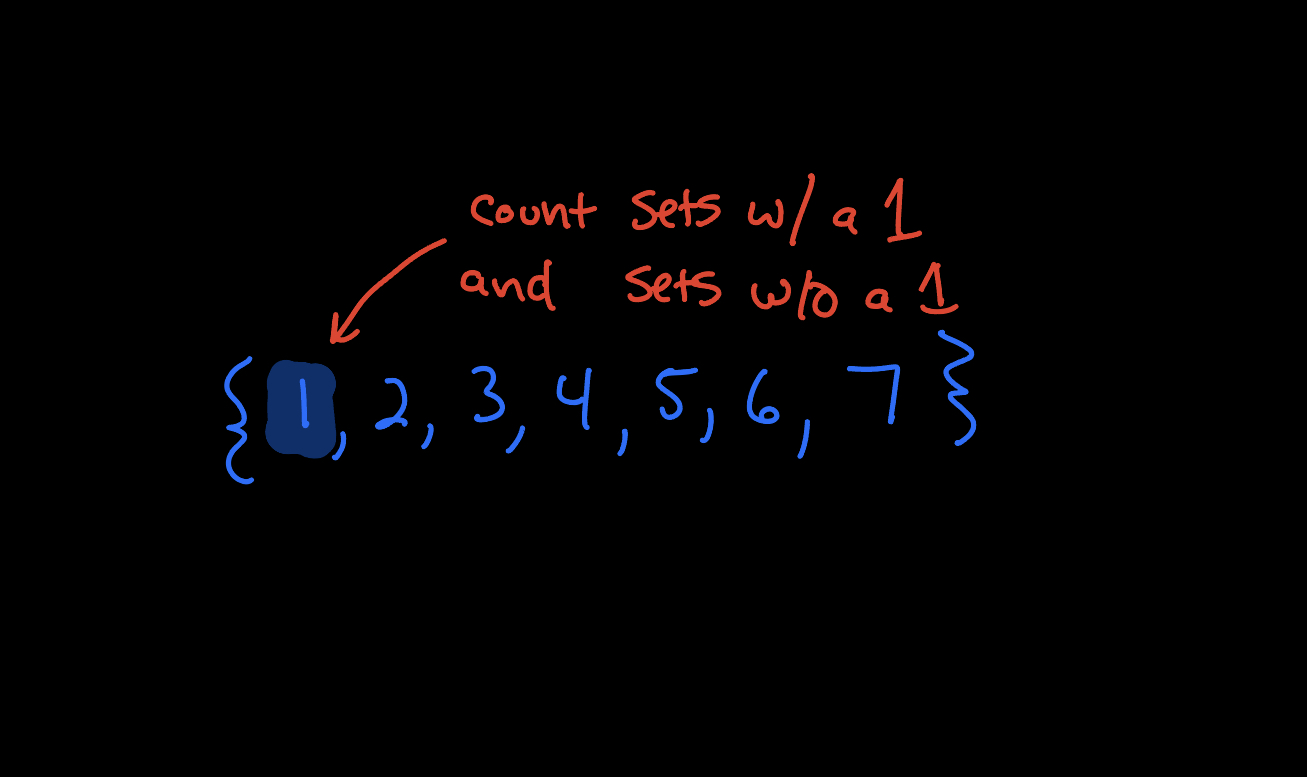 count sets w/ a 1
and sets w/o a 1
{1, 2, 3, 4, 5, 6, 7}